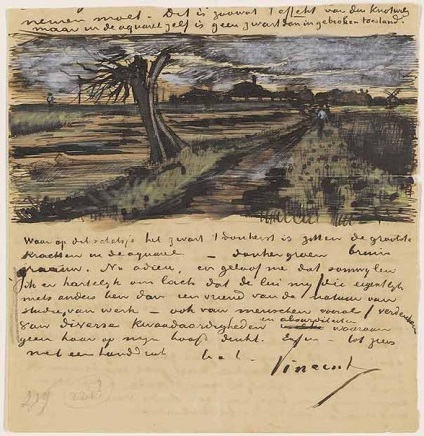 nemen moet. Dit is zoowat 't effekt van den Knotwilg
maar in de aquarel zelf is geen zwart dan in gebroken toestand.
Waar op dit schetsje het zwart 't donkerst is zitten de grootste
krachten in de aquarel – donkergroen bruin
graauw. Nu adieu, en geloof me dat somwylen
ik er hartelyk om lach dat de lui my (die eigentlyk
niets anders ben dan een vriend van de natuur van
studie, van werk – ook van menschen vooral) verdenken
van diverse kwaadaardigheden en absurditeiten waaraan
geen haar op myn hoofd denkt. Enfin – tot ziens
met een handdruk t. à. t.
Vincent
219